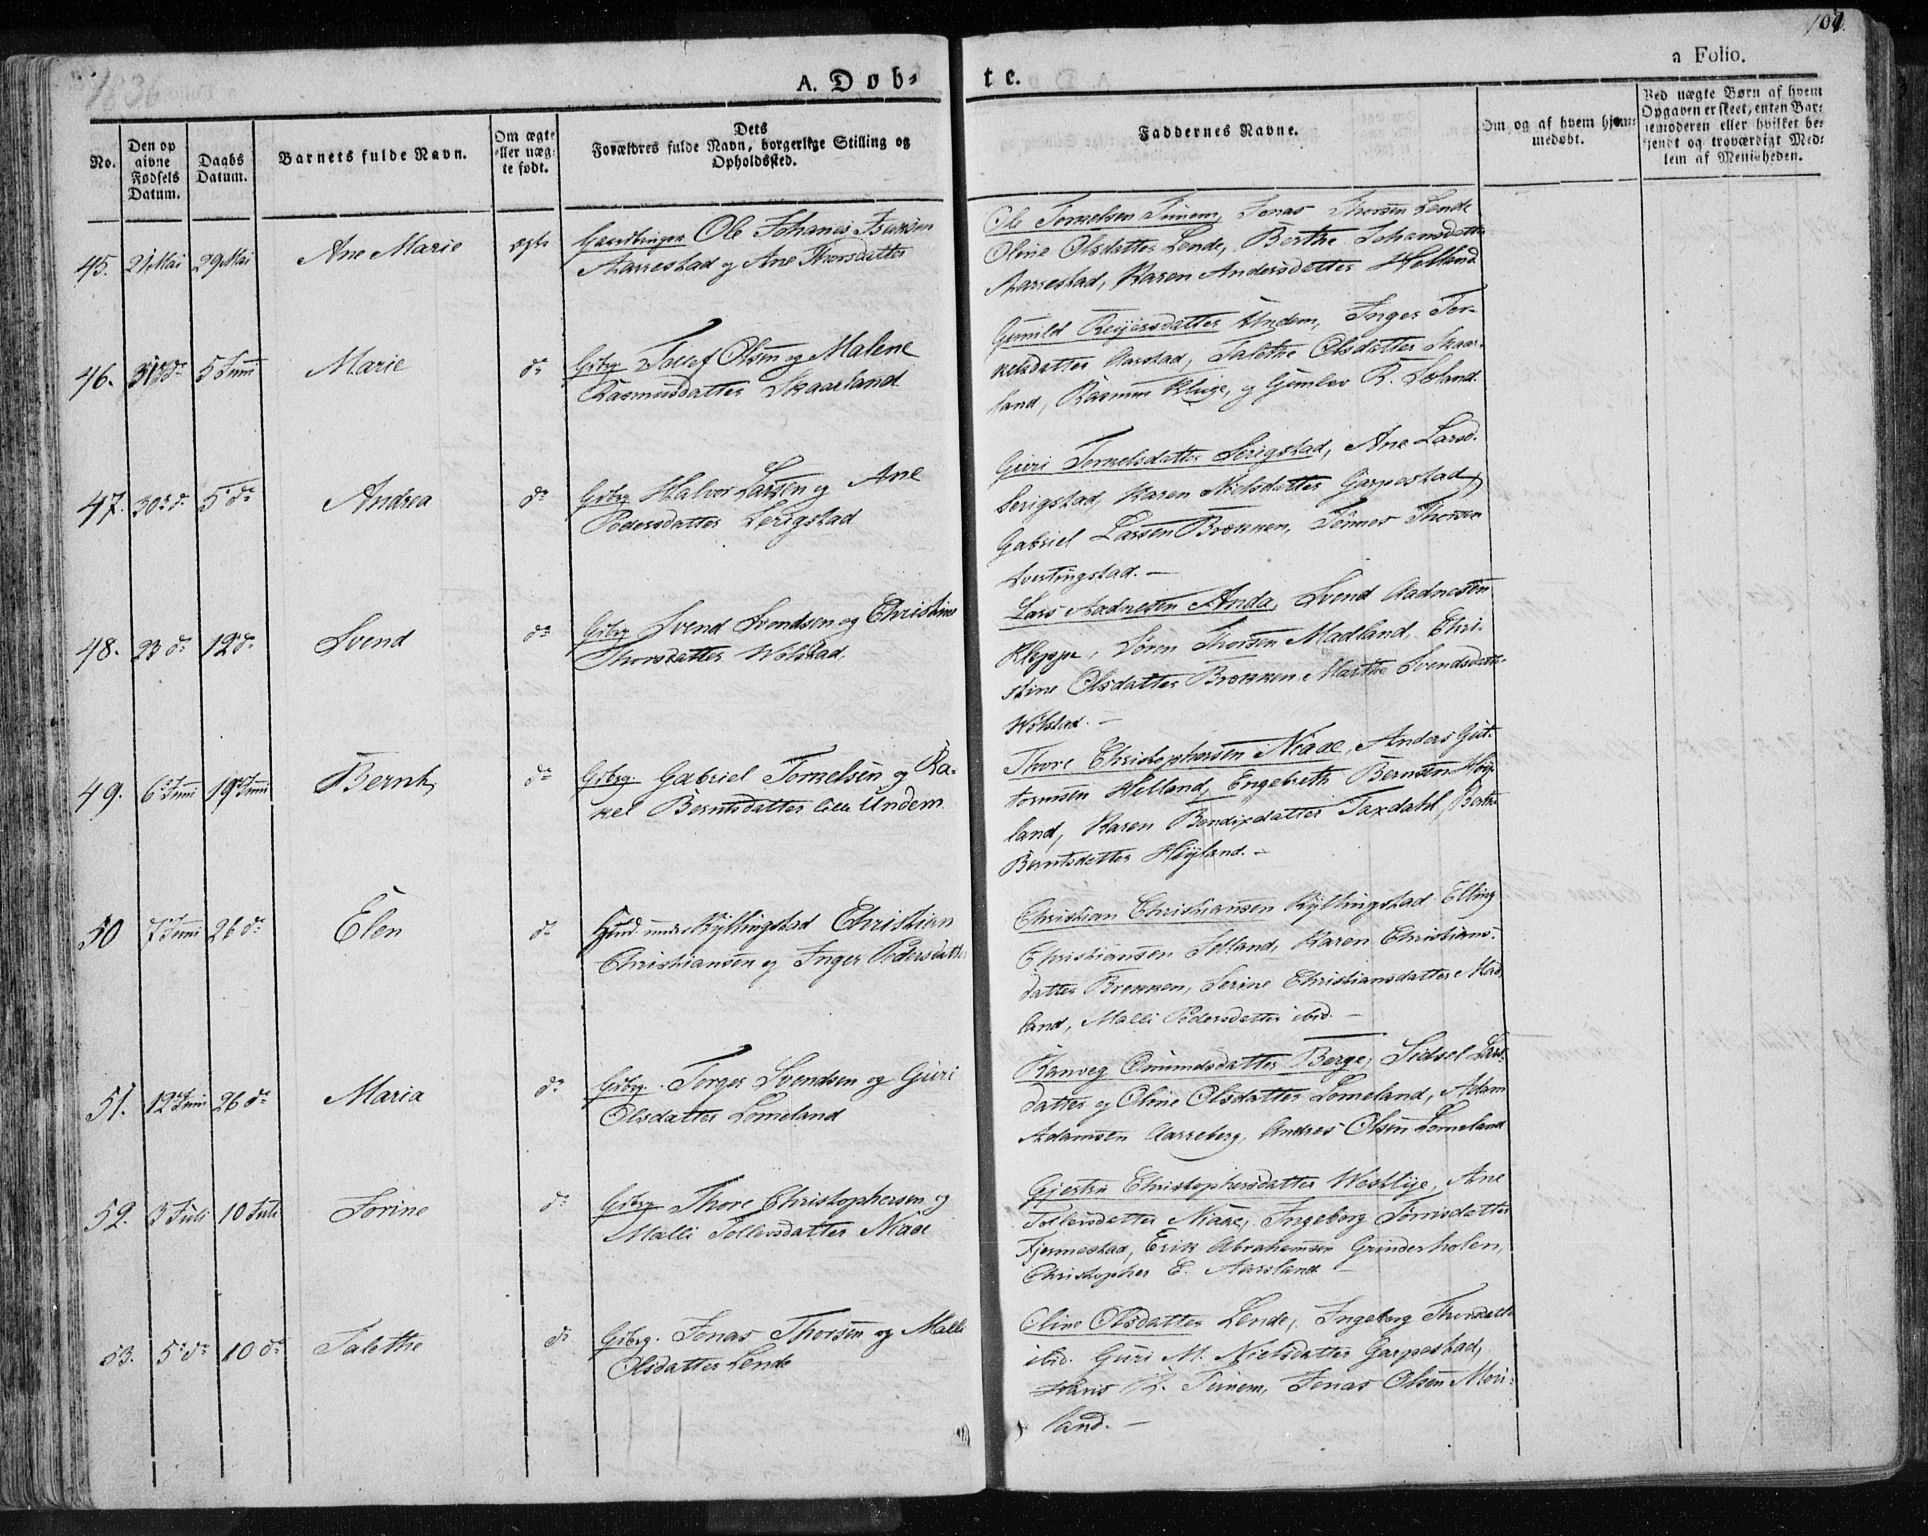 1836
A. Døb-
te.
104.
a Folio.
No.
Den op
givne
Fødsels
Datum.
Daabs
Datum.
Barnets fulde Navn.
Om ægte
eller uæg-
te født.
Dets
Forældres fulde Navn, borgerlige Stilling og
Opholdssted.
Faddernes Navne.
Om og af hvem hjem-
medøbt.
Ved uægte Børn af hvem
Opgaven er skeet, enten Bar-
nemoderen eller hvilket be-
kjendt og troværdigt Med-
lem af Menigheden.
45. 21 Mai 29 Mai Ane Marie ægte
Ole Johannes
Aarrestad og Ane Thorsdatter
Ole Torkelsen Tunem, Jonas Thorsen Lende
Oline Olsdatter Lende, Berthe Johansdatter
Aarrestad, Karen Andersdatter Helland
46. 31te do 5 Juni Marie do
Gbrg Tollef Olsen og Malene
Rasmusdatter Skaarland
Gunild Reijersdatter Undem, Inger Tor-
kelsdatter Aarstad, Talethe Olsdatter Skaar-
land, Rasmus Kluge, og Gunlev R. Skaland.
47. 30te do 5te do Andrea do
Gbrg Halvor Larsen og Ane
Pedersdatter Serigstad
Guri Torkelsdatter Serigstad, Ane Larsd.
Serigstad, Karen Nielsdatter Garpestad,
Gabriel Larsen Brekken, Tönnes Thorsen
Svertingstad. —
48. 23 do 12 do Svend do
Gbrg Svend Svendsen og Christine
Thorsdatter Wolstad.
Lars Aadnesen Anda, Svend Aadnesen
Kleppe, Sören Thorsen Madland, Chri-
stine Olsdatter Brekken Marthe Svendsdatter
Wolstad. —
49. 6te Juni 19de Juni Bernt, do
Gbrg. Gabriel Torkelsen og Ra-
kel Berntsdatter lille Undem
Thore Christophersen Niaae, Anders Gut-
tormsen Helland, Engebreth Berntsen Höy-
land, Karen Bendixdatter Taxdahl, Berthe
Berntsdatter Höyland. —
50 7de Juni 26 do Elen do
Huusmd. under Kyllingstad Christian
Christiansen og Inger Pedersdatter
Christian Christiansen Kyllingstad Elling
Christiansen Soland, Karen Christians-
datter Brekken, Serine Christiansdatter Mad-
land, Malli Pedersdatter ibid. —
51. 12te Juni 26 do Maria do
Gbrg. Torger Svendsen og Guri
Olsdatter Lomeland
Ranveg Omundsdatter Berge, Sidsel Lars-
datter og Oline Olsdatter Lomeland, Adam
Adamsen Aarreberg, Andres Olsen Lomeland
52. 3 Juli 10 Juli Sorine do
Gbrg Thore Christophersen og
Malli Tollevsdatter Niaae
Gjertru Christophersdatter Westlye, Ane
Tollevsdatter Niaae, Ingeborg Tönnisdatter
Fjermestad, Erik Abrahamsen Grinderholen,
Christopher E. Aarsland —
53. 5te do 10 do Talethe do
Gbrg. Jonas Thorsen og Malli
Olsdatter Lende
Oline Olsdatter Lende, Ingeborg Thorsdatter
ibid. Guri M. Nielsdatter Garpestad,
R. Tunem, Jonas Olsen Mori-
land. —